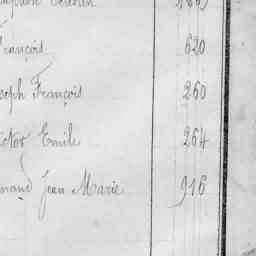 François 620
Joseph François 260
Victor Emile 264
Jean Marie 916